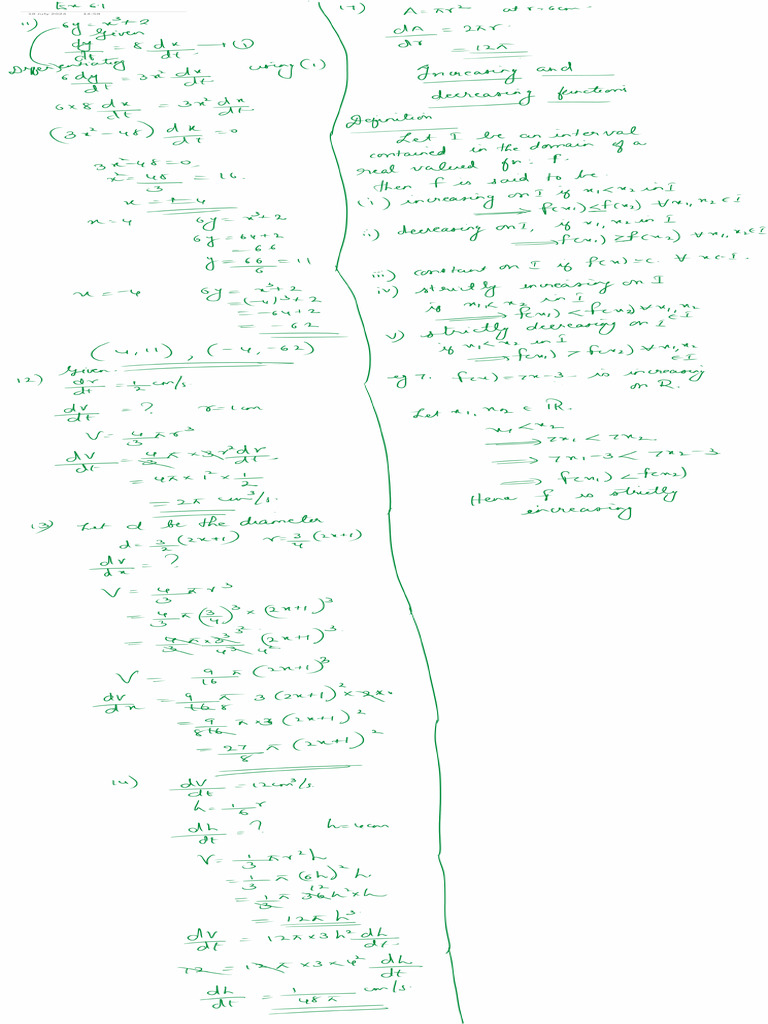 Ex 6.1
11) 6y = x³+2
Given
dy/dt = 8 dx/dt → (1)
Differentiating
6 dy/dt = 3x² dx/dt using (1)
6×8 dx/dt = 3x² dx/dt
(3x²-48) dx/dt = 0
3x²-48=0
x² = 48/3 = 16
x = +-4
x = 4 6y = x³+2
6y = 64+2
= 66
y = 66/6 = 11
x = -4 6y = x³+2
= (-4)³+2
= -64+2
= -62
(4,11), (-4,-62)
12) Given
dr/dt = 1/2 cm/s
dv/dt = ? r=1cm
V = 4/3 π r³
dV/dt = 4/3 π × 3r² dr/dt
= 4π × 1² × 1/2
= 2π cm³/s.
13) Let d be the diameter
d = 3/2 (2x+1) r = 3/4 (2x+1)
dv/dx = ?
V = 4/3 π r³
= 4/3 π (3/4)³ × (2x+1)³
= 4π×3³ ² / 3 4³ 4² (2x+1)³
V = 9/16 π (2x+1)³
dv/dx = 9/16 8 π 3 (2x+1)² × 2
= 9/8 π × 3 (2x+1)²
= 27/8 π (2x+1)²
14) dV/dt = 12cm³/s
h = 1/6 r
dh/dt = ? h=4cm
V = 1/3 π r² h
= 1/3 π (6h)² h
= 1/3 π 36 12 h² × h
= 12π h³
dV/dt = 12π × 3h² dh/dt
12 = 12π × 3 × 4² dh/dt
dh/dt = 1/48π cm/s
17) A = πr² at r=6cm
dA/dr = 2πr
= 12π
Increasing and
decreasing functions
Definition
Let I be an interval
contained in the domain of a
real valued fn. f.
then f is said to be
(i) increasing on I if x₁<x₂ in I
⟹ f(x₁) ≤ f(x₂) ∀ x₁, x₂ ∈ I
ii) decreasing on I, if x₁, x₂ in I
⟹ f(x₁) ≥ f(x₂) ∀ x₁, x₂ ∈ I
iii) constant on I if f(x)=c ∀ x∈I.
iv) strictly increasing on I
if x₁<x₂ in I
⟹ f(x₁) < f(x₂) ∀ x₁, x₂ ∈ I
v) strictly decreasing on I
if x₁<x₂ in I
⟹ f(x₁) > f(x₂) ∀ x₁, x₂ ∈ I
eg 7. f(x) = 7x-3 is increasing
on R.
Let x₁, x₂ ∈ R.
x₁ < x₂
⟹ 7x₁ < 7x₂
⟹ 7x₁-3 < 7x₂-3
⟹ f(x₁) < f(x₂)
Hence f is strictly
increasing